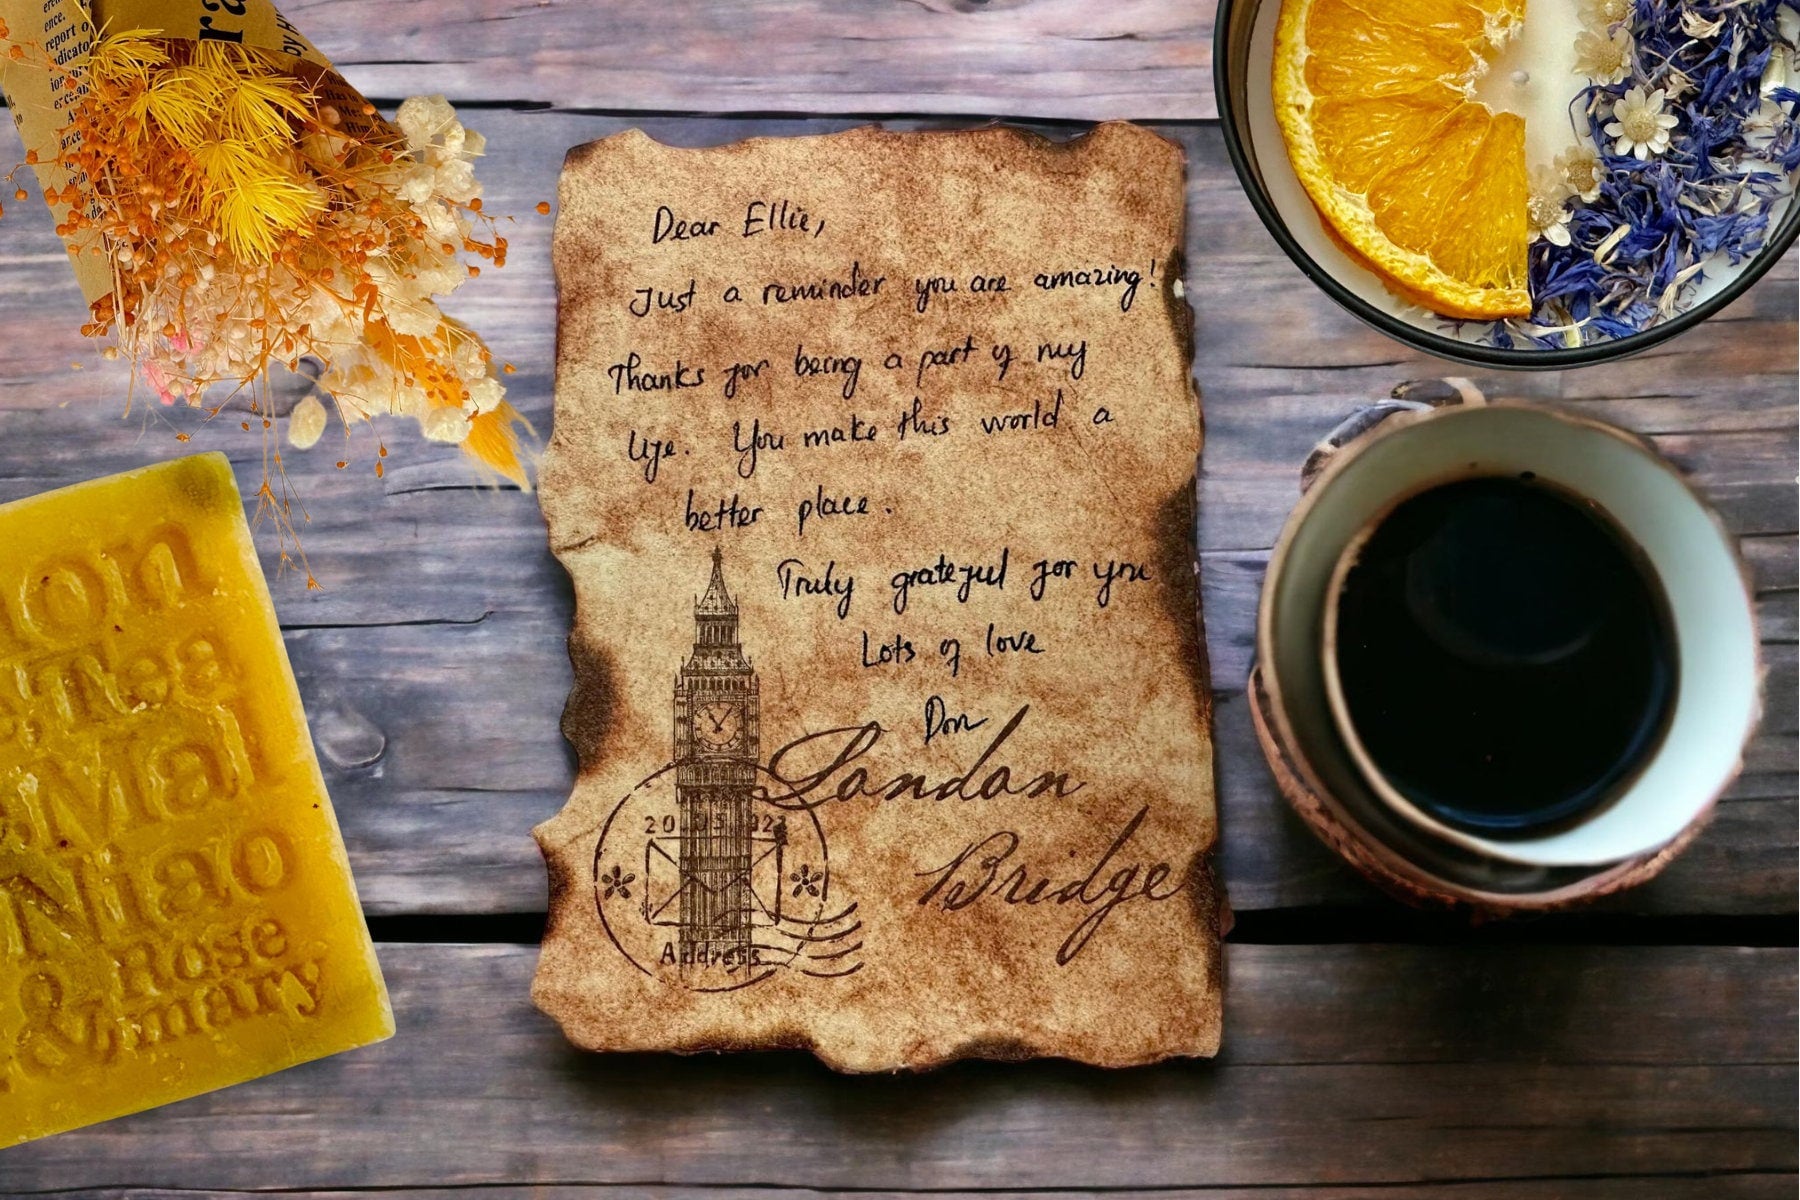 report o
by
Dear Ellie,
Just a reminder you are amazing!
Thanks for being a part of my
life. You make this world a
better place.
Truly grateful for you
Lots of love
Don
London
Bridge
20 05
Address
Tea
Mal
Niao
& Rose
mary